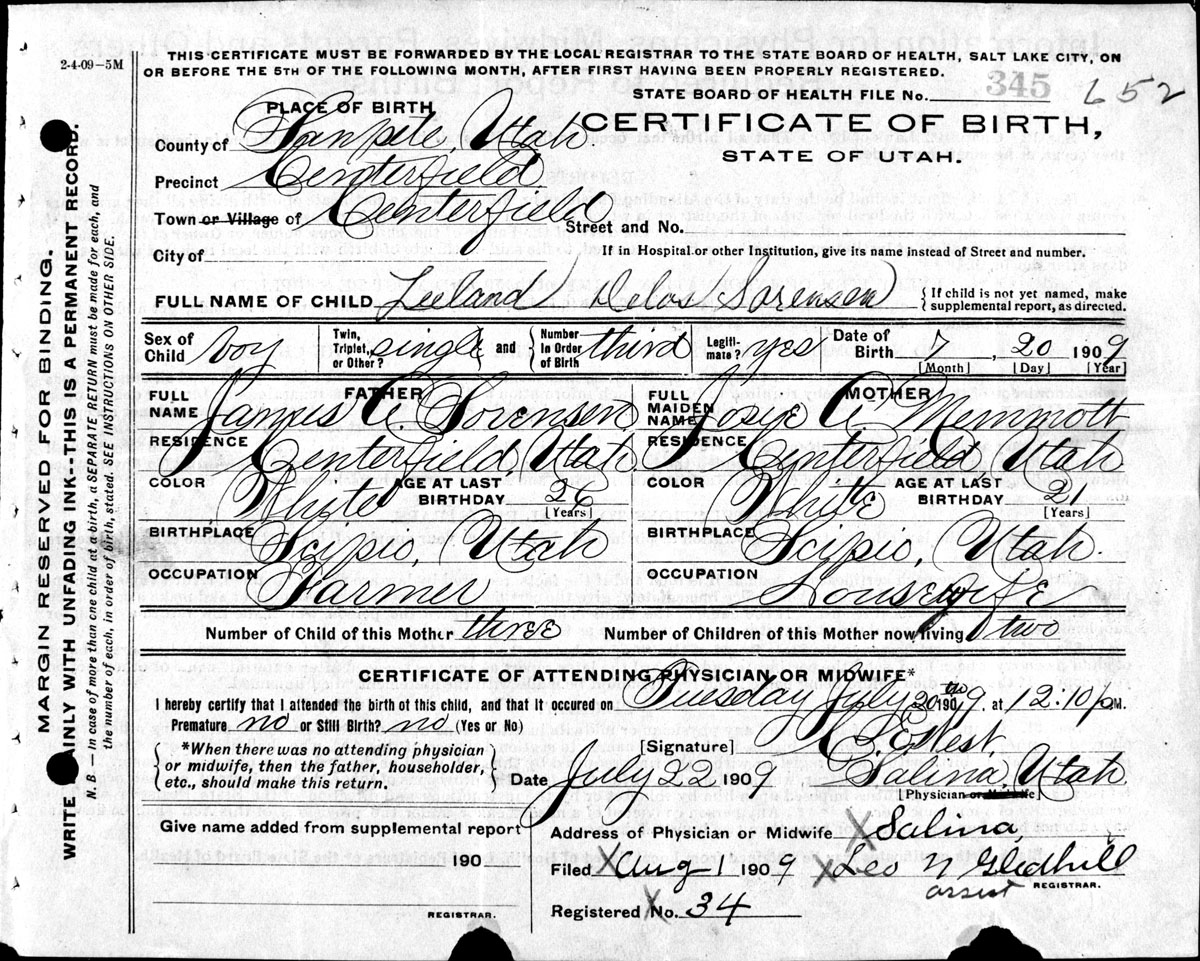 2-4-09—5M
THIS CERTIFICATE MUST BE FORWARDED BY THE LOCAL REGISTRAR TO THE STATE BOARD OF HEALTH, SALT LAKE CITY, ON
OR BEFORE THE 5TH OF THE FOLLOWING MONTH, AFTER FIRST HAVING BEEN PROPERLY REGISTERED.
STATE BOARD OF HEALTH FILE No. 345 652
PLACE OF BIRTH
CERTIFICATE OF BIRTH,
STATE OF UTAH.
County of Sanpete, Utah.
Precinct Centerfield
Town or Village of Centerfield Street and No.
City of If in Hospital or other Institution, give its name instead of Street and number.
FULL NAME OF CHILD Leeland Delos Sorensen { If child is not yet named, make
supplemental report, as directed.
Sex of Child boy Twin, Triplet, or Other? single and Number In Order of Birth third Legiti-mate? yes Date of Birth 7, 20 1909
[Month] [Day] [Year]
FATHER MOTHER
FULL NAME James A. Sorensen FULL MAIDEN NAME Josie A. Memmott
RESIDENCE Centerfield, Utah RESIDENCE Centerfield, Utah
COLOR White AGE AT LAST BIRTHDAY 26 [Years] COLOR White AGE AT LAST BIRTHDAY 21 [Years]
BIRTHPLACE Scipio, Utah BIRTHPLACE Scipio, Utah.
OCCUPATION Farmer OCCUPATION Housewife
Number of Child of this Mother three Number of Children of this Mother now living two
CERTIFICATE OF ATTENDING PHYSICIAN OR MIDWIFE*
I hereby certify that I attended the birth of this child, and that it occured on Tuesday July 20th 1909. at 12:10 p M.
Premature no or Still Birth? no (Yes or No)
*When there was no attending physician
or midwife, then the father, householder,
etc., should make this return.
[Signature] West
Date July 22 1909 Salina, Utah
[Physician or Midwife]
Give name added from supplemental report
190
REGISTRAR.
Address of Physician or Midwife X Salina,
Filed X Aug 1 1909 X Leo N Gledhill
assist REGISTRAR.
Registered X No. 34
MARGIN RESERVED FOR BINDING.
WRITE PLAINLY WITH UNFADING INK---THIS IS A PERMANENT RECORD.
N. B. — In case of more than one child at a birth, a SEPARATE RETURN must be made for each, and
the number of each, in order of birth, stated. SEE INSTRUCTIONS ON OTHER SIDE.